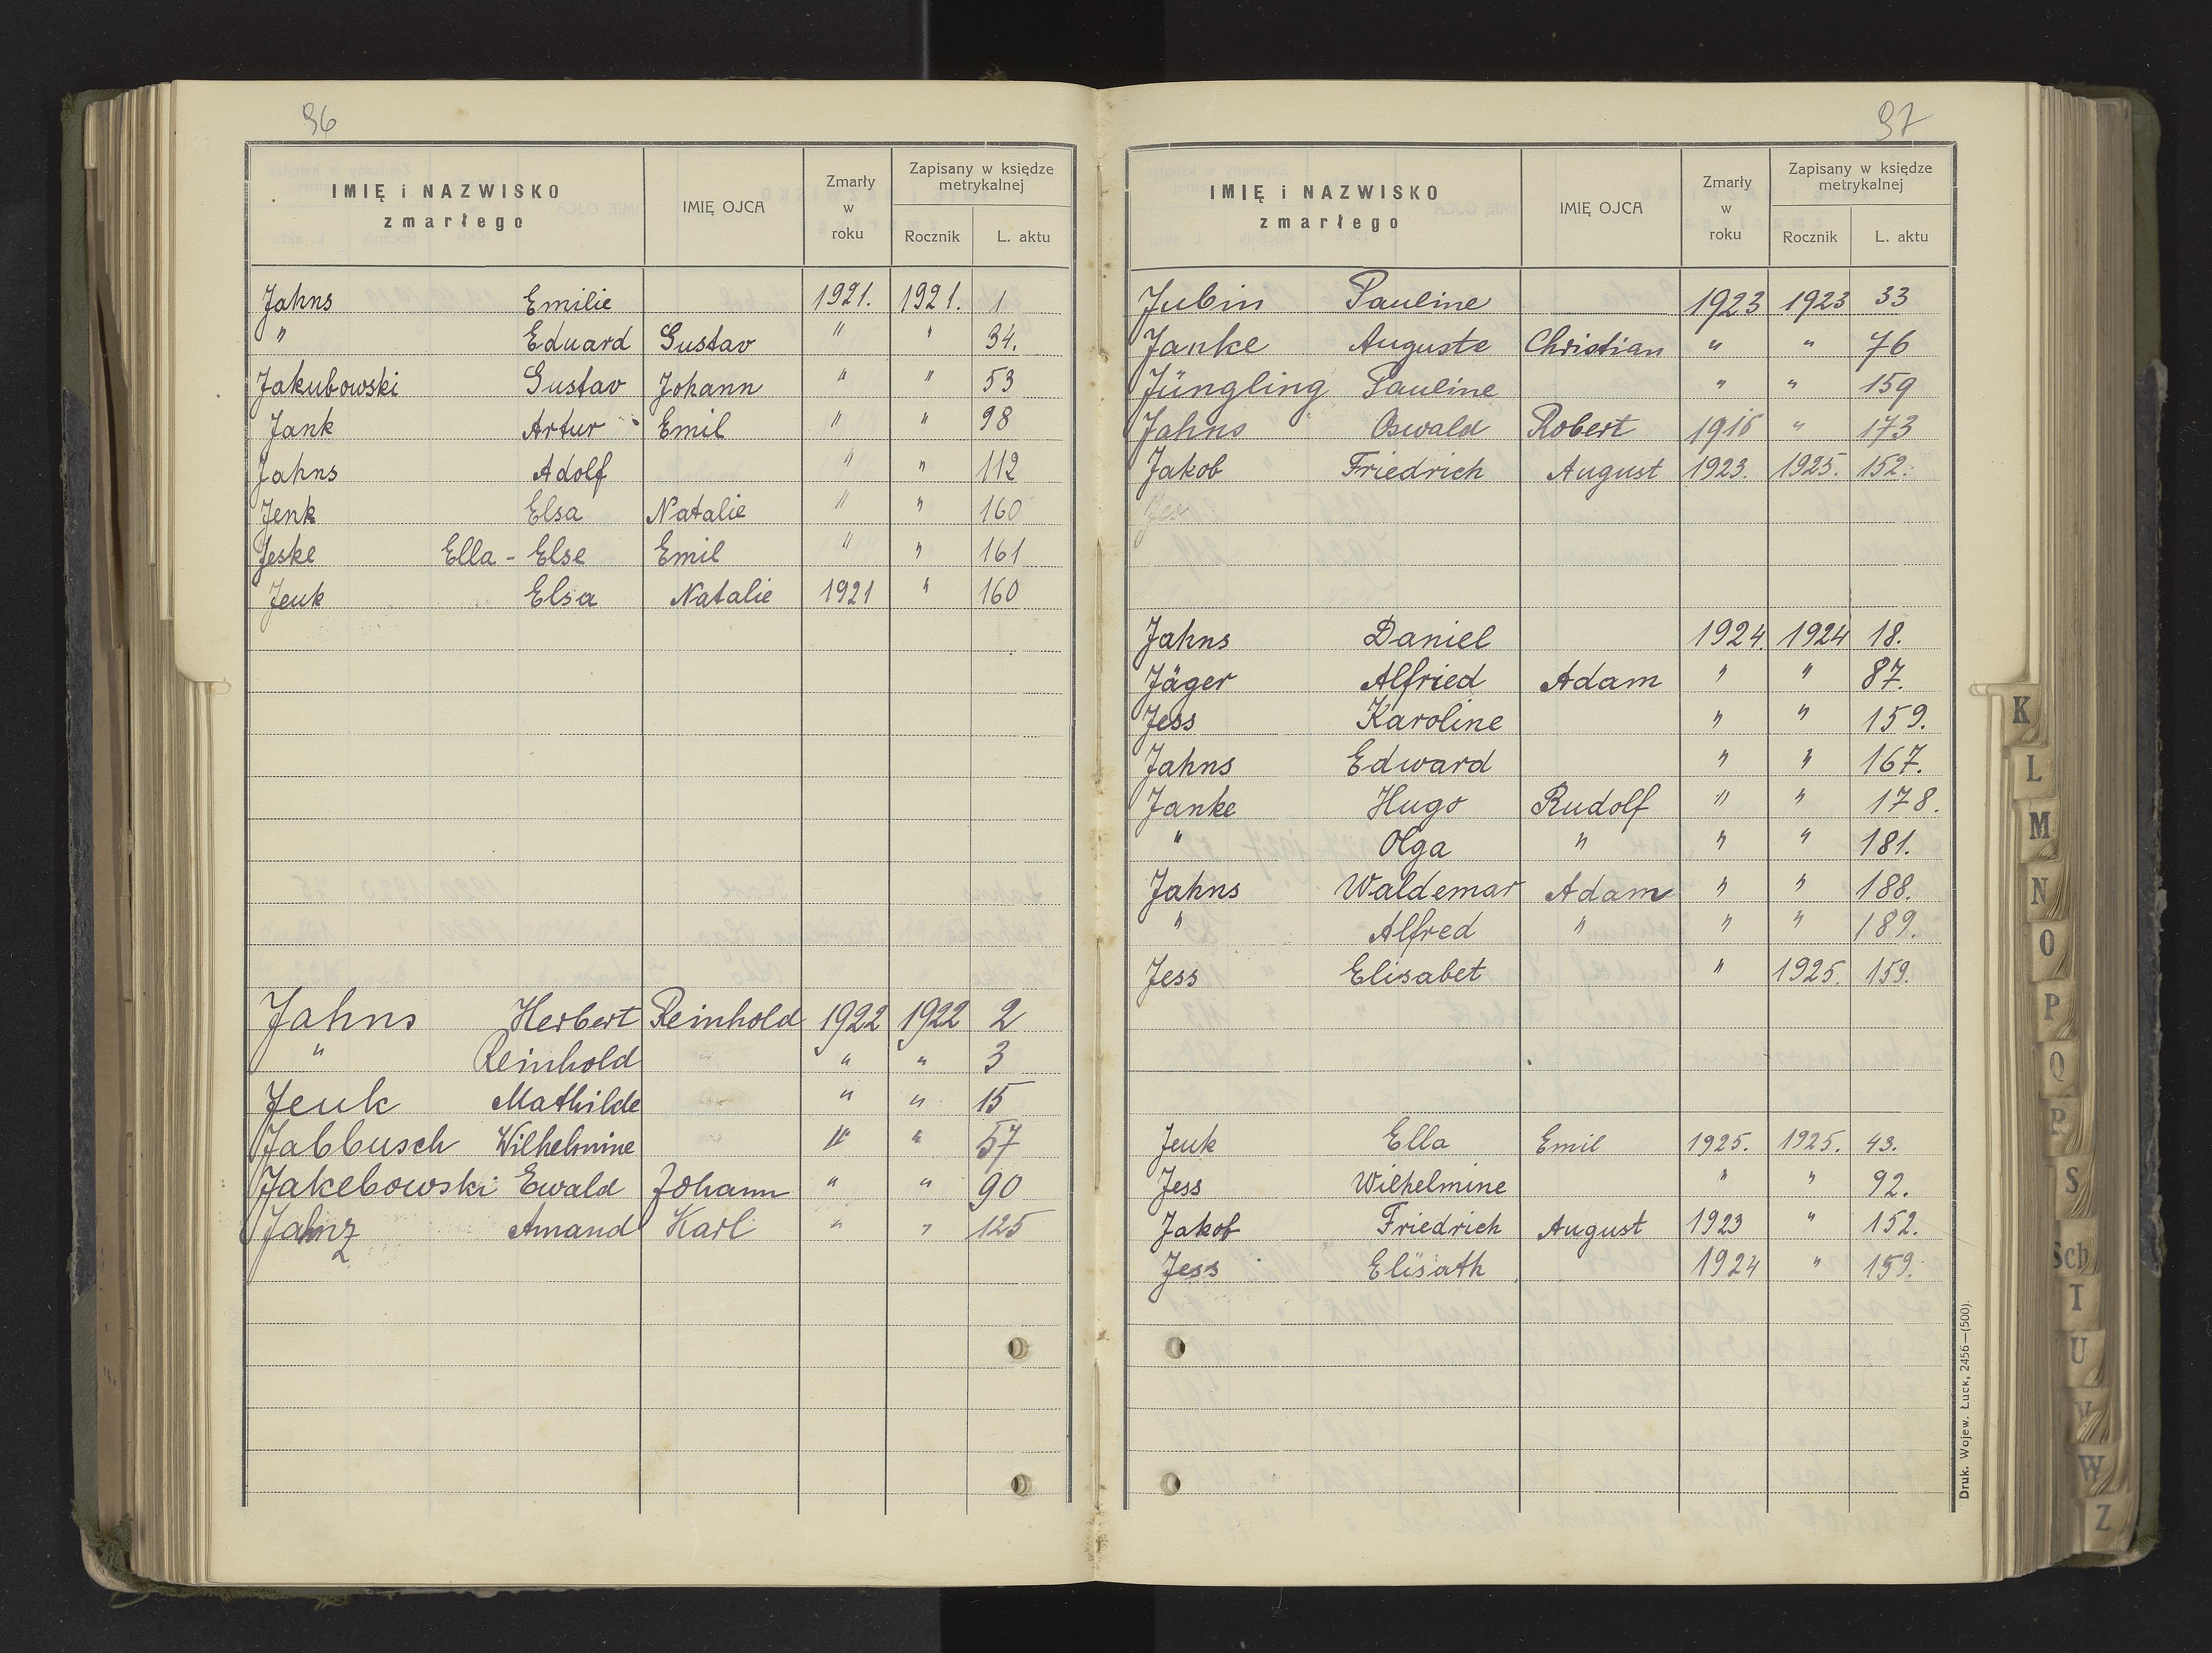 96
IMIĘ i NAZWISKO zmarłego IMIĘ OJCA Zmarły w roku Zapisany w księdze metrykalnej Rocznik L. aktu
Jahns Emilie 1921. 1921. 1
" Eduard Gustav " " 34.
Jakubowski Gustav Johann " " 53
Jank Artur Emil " " 98
Jahns Adolf " " 112
Jenk Elsa Natalie " " 160
Jeske Ella - Else Emil " " 161
Jeuk Elsa Natalie 1921 " 160
Jahns Herbert Reinhold 1922 1922 2
" Reinhold " " 3
Jeuk Mathilde " " 15
Jabbusch Wilhelmine " " 57
Jakebowski Ewald Johann " " 90
Jahnz Amand Karl " " 125
97
IMIĘ i NAZWISKO zmarłego IMIĘ OJCA Zmarły w roku Zapisany w księdze metrykalnej Rocznik L. aktu
Jubin Pauline 1923 1923 33
Janke Auguste Christian " " 76
Jüngling Pauline " " 159
Jahns Oswald Robert 1916 " 173
Jakob Friedrich August 1923. 1925. 152.
Jes
Jahns Daniel 1924. 1924 18.
Jäger Alfried Adam " " 87.
Jess Karoline " " 159.
Jahns Edward " " 167.
Janke Hugo Rudolf " " 178.
" Olga " " " 181.
Jahns Waldemar Adam " " 188.
" Alfred " " " 189.
Jess Elisabet " 1925. 159.
Jeuk Ella Emil 1925. 1925. 43.
Jess Wilhelmine " " 92.
Jakob Friedrich August 1923 " 152.
Jess Elisath 1924 " 159.
Druk. Wojew. Łuck, 2456—(500).
K
L
M
N
O
P
Q
R
S
Sch
T
U
V
W
Z